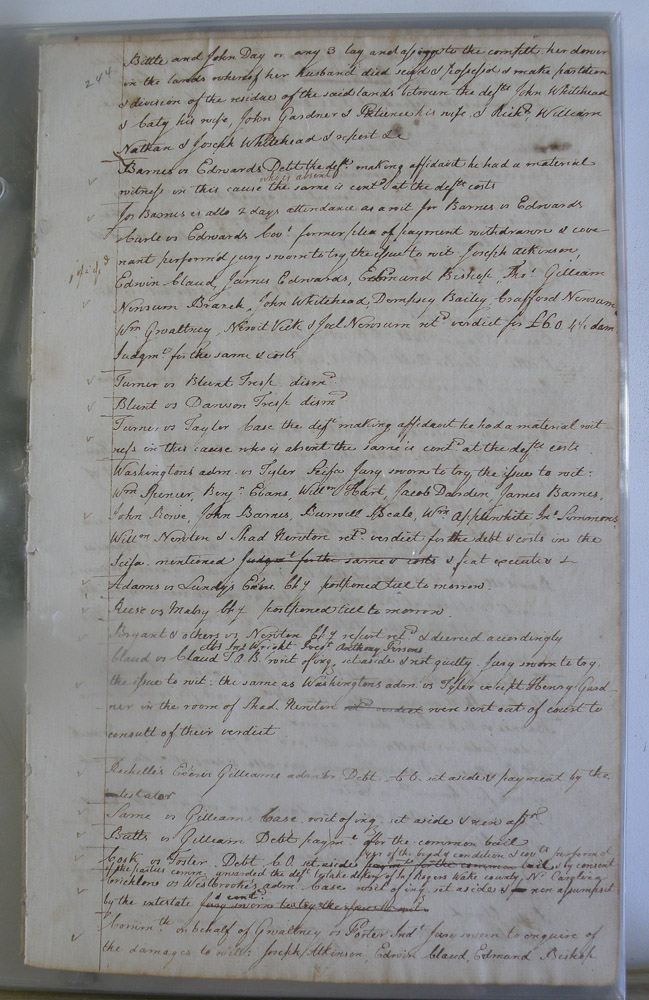 244
Bittle and John Day or any 3 lay and assign to the complt. her dower
in the lands whereof her husband died seized & possessed & make partition
& division of the residue of the said lands between the defts John Whitehead
& Caty his wife, John Gardner & Patience his wife & Richd, William
Nathan & Joseph Whitehead & report &c
Barnes vs Edwards Debt the deft. making affidavit he had a material
who is absent
witness in this cause the same is contd at the defts costs
Jos Barnes is allo 2 days attendance as a wit for Barnes vs Edwards
Carle vs Edwards Covt. former plea of payment withdrawn & cove
nant perform'd jury sworn to try the issue to wit Joseph Atkinson,
Edwin Claud, James Edwards, Edmund Bishop, Thos. Gilliam
Newsum Branch, John Whitehead, Dempsey Bailey, Crafford Newsum
Wm Gwaltney, Newit Vick & Joel Newsum retd verdict for £60.4½ dam
Judgmt for the same & costs
Turner vs Blunt Tresp. dismd
Blunt vs Dawson Tresp dismd
Turner vs Taylor Case the deft making affidavit he had a material wit-
ness in this cause who is absent the same is contd. at the defts costs.
Washingtons adm. vs Tyler Scifa Jury sworn to try the issue to wit:
Wm Spencer, Benjn Evans, Willm Hart, Jacob Darden, James Barnes,
John Bowe, John Barnes, Burwell Beale, Wm Applewhite Jno Simmons,
Willm Newton & Shad Newton retd verdict for the debt & costs in the
Scifa. mentioned Judgmt for the same & costs & fiat executio &
Adams vs Lundys Exor. Chy postponed till to morrow
Reese vs Mabry Chy postponed till to morrow.
Bryant & others vs Newton Chy report retd & decreed accordingly
Abs Jno Wright Anthony
Claud vs Claud T.A.B. writ of inq. set aside & not guilty. Jury sworn to try
the issue to wit: the same as Washingtons adm. vs Tyler except Henry Gard-
ner in the room of Shad. Newton retd verdict were sent out of court to
consult of their verdict
Rochelle's Exors Gilleams admr Debt. C.O. set aside & payment by the
testator
Same vs Gilleam Case writ of inq. set aside & non assd.
Butts vs Gilleam Debt paymt for the common bail
of the condition & covts performed
Cook vs Foster Debt C.O. set aside payment & the common bail & by consent
of the parties comn. awarded the deft to take depn of Rogers Wake county, No Carolina
Cricklow vs Westbrooks adm. Case writ of inq. set aside & non assumpsit
& contd
by the intestate jury sworn to try the issue to wit
Commth. on behalf of Gwaltney vs Porter Indt Jury sworn to enquire of
the damages to wit: Joseph Atkinson, Edwin Claud, Edmund Bishop